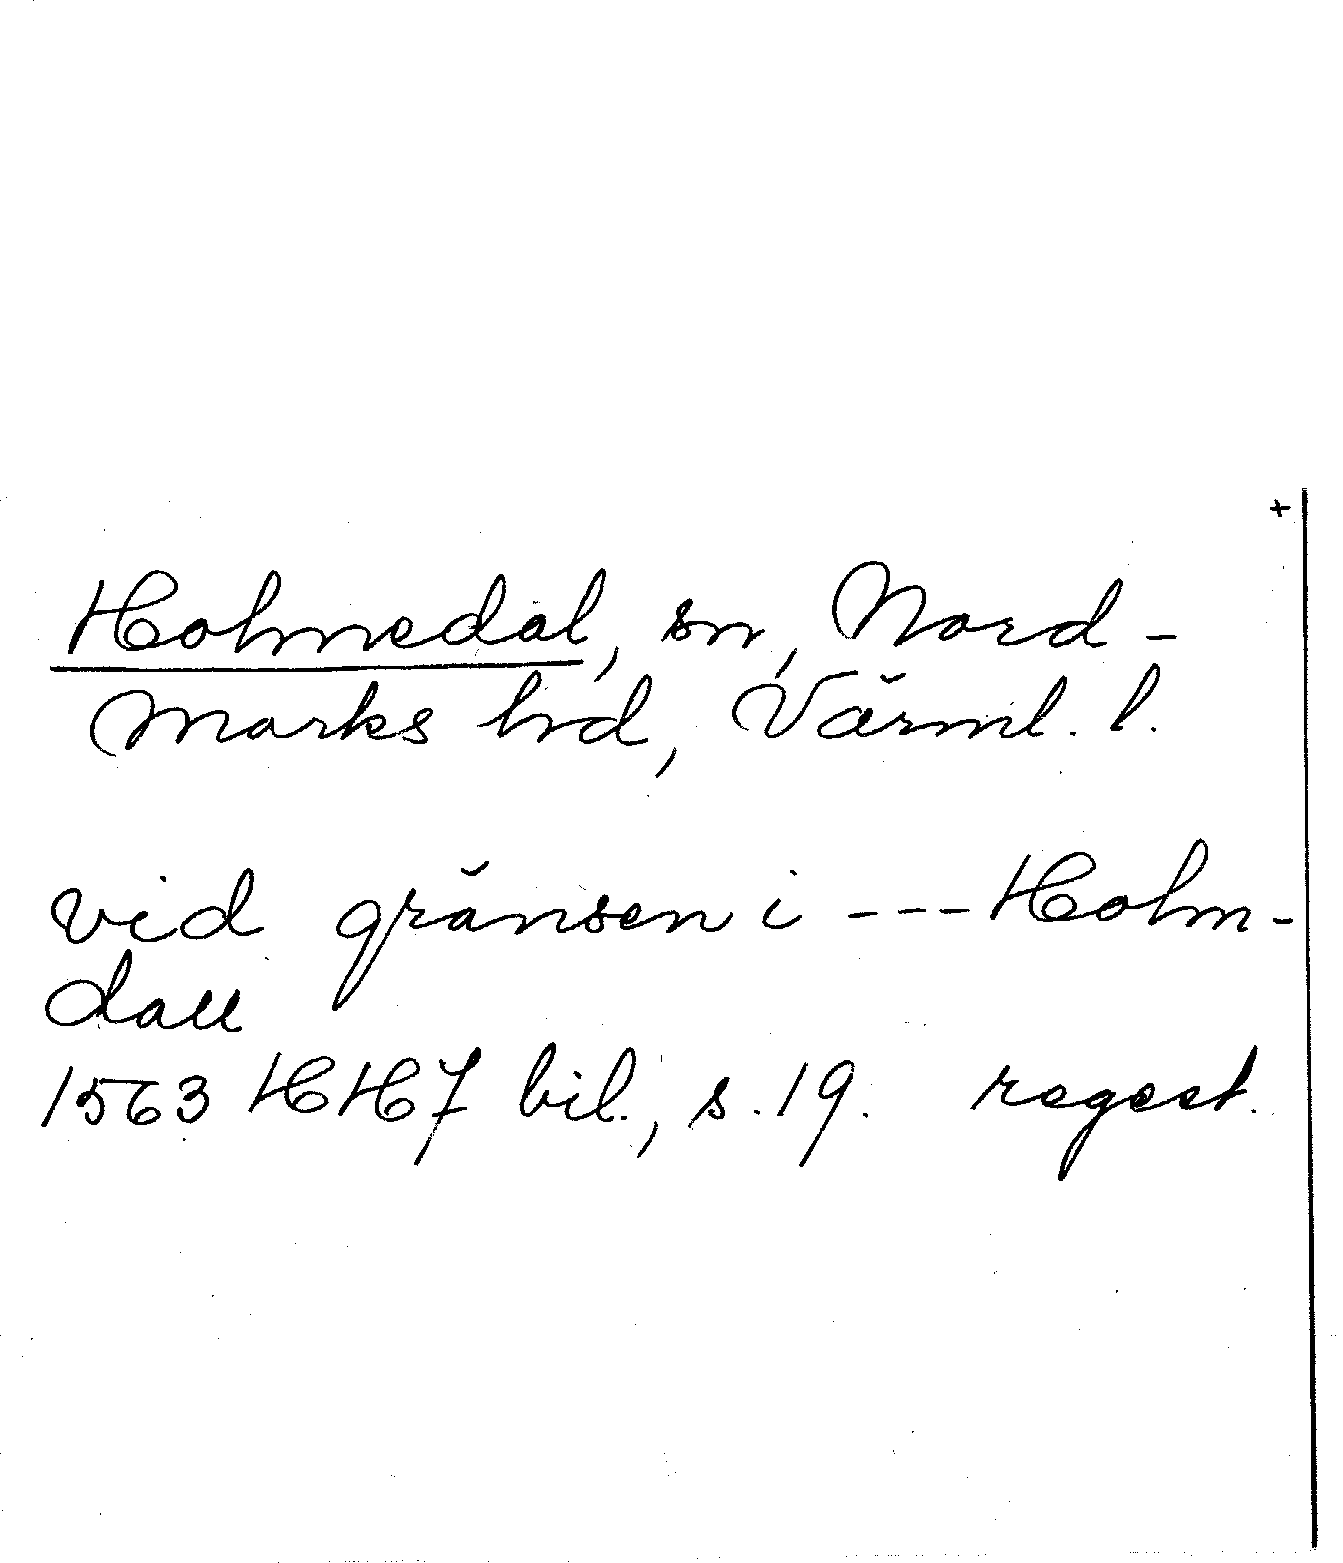 +
Holmedal, sn, Nord-
marks hd, Värml. l.
vid gränsen i --- Holm-
dall
1563 HH7 bil., s. 19. regest.